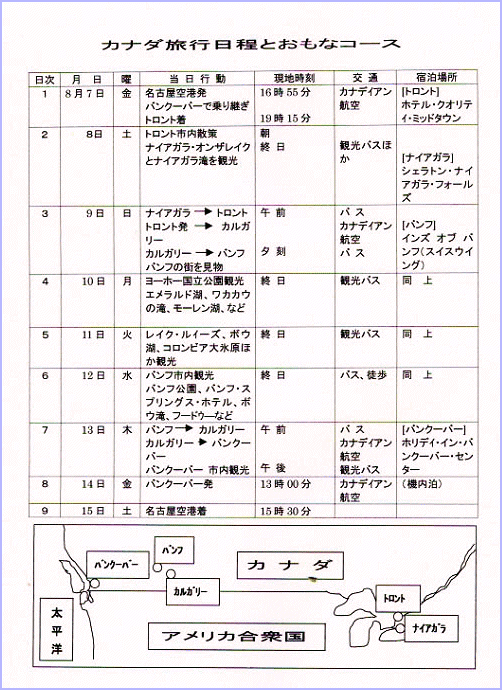 カナダ旅行日程とおもなコース
日次 月 日 曜 当日行動 現地時刻 交通 宿泊場所
1 8月7日 金 名古屋空港発 16時55分 カナディアン [トロント]
バンクーバーで乗り継ぎ 航空 ホテル・クオリテ
トロント着 19時15分 ィ・ミッドタウン
2 8日 土 トロント市内散策 朝
ナイアガラ・オンザレイク 終日 観光バスほ
とナイアガラ滝を観光 か [ナイアガラ]
シェラトン・ナイ
アガラ・フォール
ズ
3 9日 日 ナイアガラ → トロント 午前 バス
トロント発 → カルガ カナディアン [バンフ]
リー 航空 インズ オブ バ
カルガリー → バンフ 夕刻 バス ンフ(スイスウイ
バンフの街を見物 ング)
4 10日 月 ヨーホー国立公園観光 終日 観光バス 同上
エメラルド湖、ワカカウ
の滝、モーレン湖、など
5 11日 火 レイク・ルィーズ、ボウ 終日 観光バス 同上
湖、コロンビア大氷原ほ
か観光
6 12日 水 バンフ市内観光 終日 バス、徒歩 同上
バンフ公園、バンフ・ス
プリングス・ホテル、ボ
ウ滝、フードゥーなど
7 13日 木 バンフ → カルガリー 午前 バス [バンクーバー]
カルガリー → バンクー カナディアン ホリデイ・イン・バ
バー 航空 ンクーバー・セン
バンクーバー 市内観光 午後 観光バス ター
8 14日 金 バンクーバー発 13時00分 カナディアン (機内泊)
航空
9 15日 土 名古屋空港着 15時30分
バンクーバー
バンフ
カナダ
カルガリー
トロント
太平洋
アメリカ合衆国
ナイアガラ